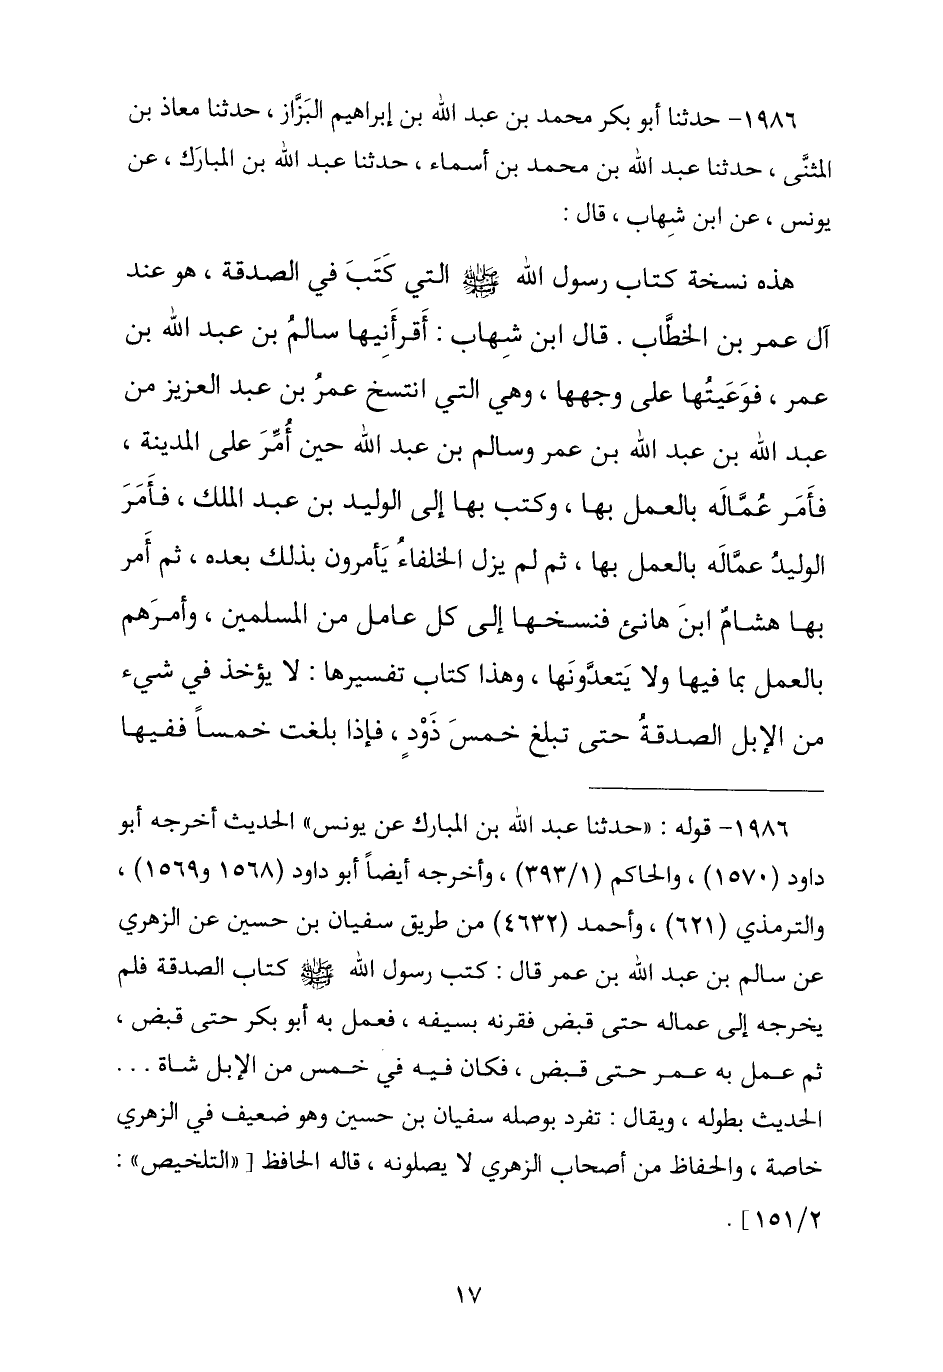 ١٩٨٦- حدثنا أبو بكر محمد بن عبد الله بن إبراهيم البَزَّاز ، حدثنا معاذ بن
المثنَّى ، حدثنا عبد الله بن محمد بن أسماء ، حدثنا عبد الله بن المبارَك ، عن
يونس ، عن ابن شِهاب ، قال :
هذه نسخة كتاب رسول الله ﷺ التي كَتَبَ في الصدقة ، هو عند
آل عمر بن الخطَّاب . قال ابن شِهاب : أَقرأَنِيها سالمُ بن عبد الله بن
عمر ، فوَعَيتُها على وجهها ، وهي التي انتسخ عمرُ بن عبد العزيز من
عبد الله بن عبد الله بن عمر وسالم بن عبد الله حين أُمِّرَ على المدينة ،
فأَمَر عُمَّالَه بالعمل بها ، وكتب بها إلى الوليد بن عبد الملك ، فأَمَرَ
الوليدُ عمَّالَه بالعمل بها ، ثم لم يزل الخلفاءُ يَأمرون بذلك بعده ، ثم أَمر
بها هشامٌ ابنَ هانئ فنسخها إلى كل عامل من المسلمين ، وأمرَهم
بالعمل بما فيها ولا يَتعدَّونَها ، وهذا كتاب تفسيرها : لا يؤخذ في شيء
من الإبل الصدقةُ حتى تبلغ خمسَ ذَوْدٍ ، فإذا بلغت خمساً ففيها
١٩٨٦- قوله : «حدثنا عبد الله بن المبارك عن يونس» الحديث أخرجه أبو
داود (١٥٧٠) ، والحاكم (٣٩٣/١) ، وأخرجه أيضاً أبو داود (١٥٦٨ و١٥٦٩) ،
والترمذي (٦٢١) ، وأحمد (٤٦٣٢) من طريق سفيان بن حسين عن الزهري
عن سالم بن عبد الله بن عمر قال : كتب رسول الله ﷺ كتاب الصدقة فلم
يخرجه إلى عماله حتى قبض فقرنه بسيفه ، فعمل به أبو بكر حتى قبض ،
ثم عمل به عمر حتى قبض ، فكان فيه في خمس من الإبل شاة ...
الحديث بطوله ، ويقال : تفرد بوصله سفيان بن حسين وهو ضعيف في الزهري
خاصة ، والحفاظ من أصحاب الزهري لا يصلونه ، قاله الحافظ [ «التلخيص» :
١٥١/٢] .
١٧